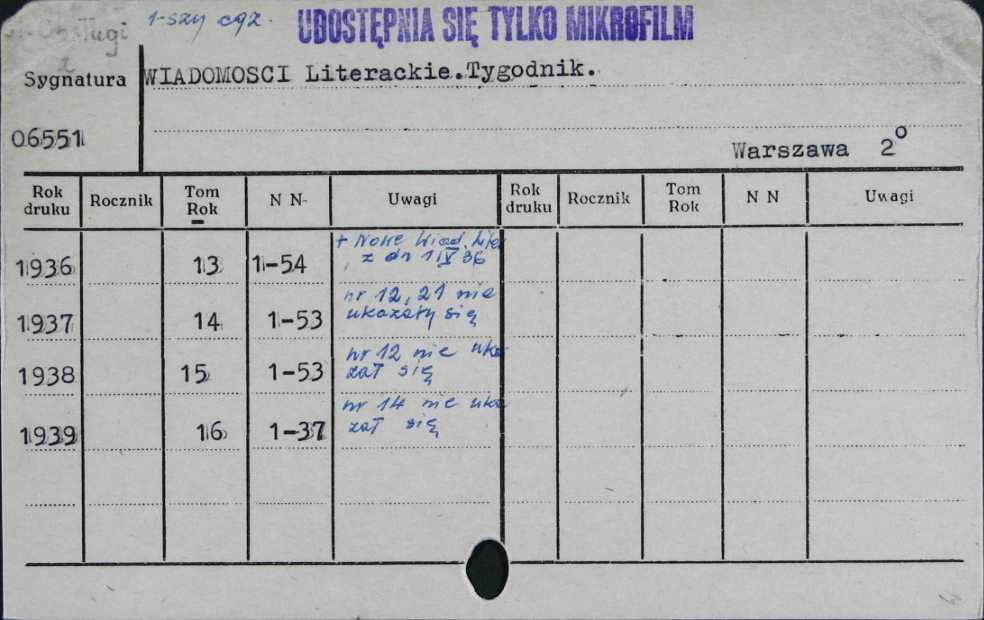 1-szy egz.
UDOSTĘPNIA SIĘ TYLKO MIKROFILM
Sygnatura
WIADOMOSCI Literackie.Tygodnik.
06551
Warszawa 2°
Rok druku Rocznik Tom Rok N N- Uwagi Rok druku Rocznik Tom Rok N N Uwagi
1936 13 1-54 + Nowe Wiad. Lite
z dn 1 IV 36
1937 14 1-53 nr 12, 21 nie
ukazały się
1938 15 1-53 nr 12 nie uka
zał się
1939 16 1-37 nr 14 nie uka
zał się